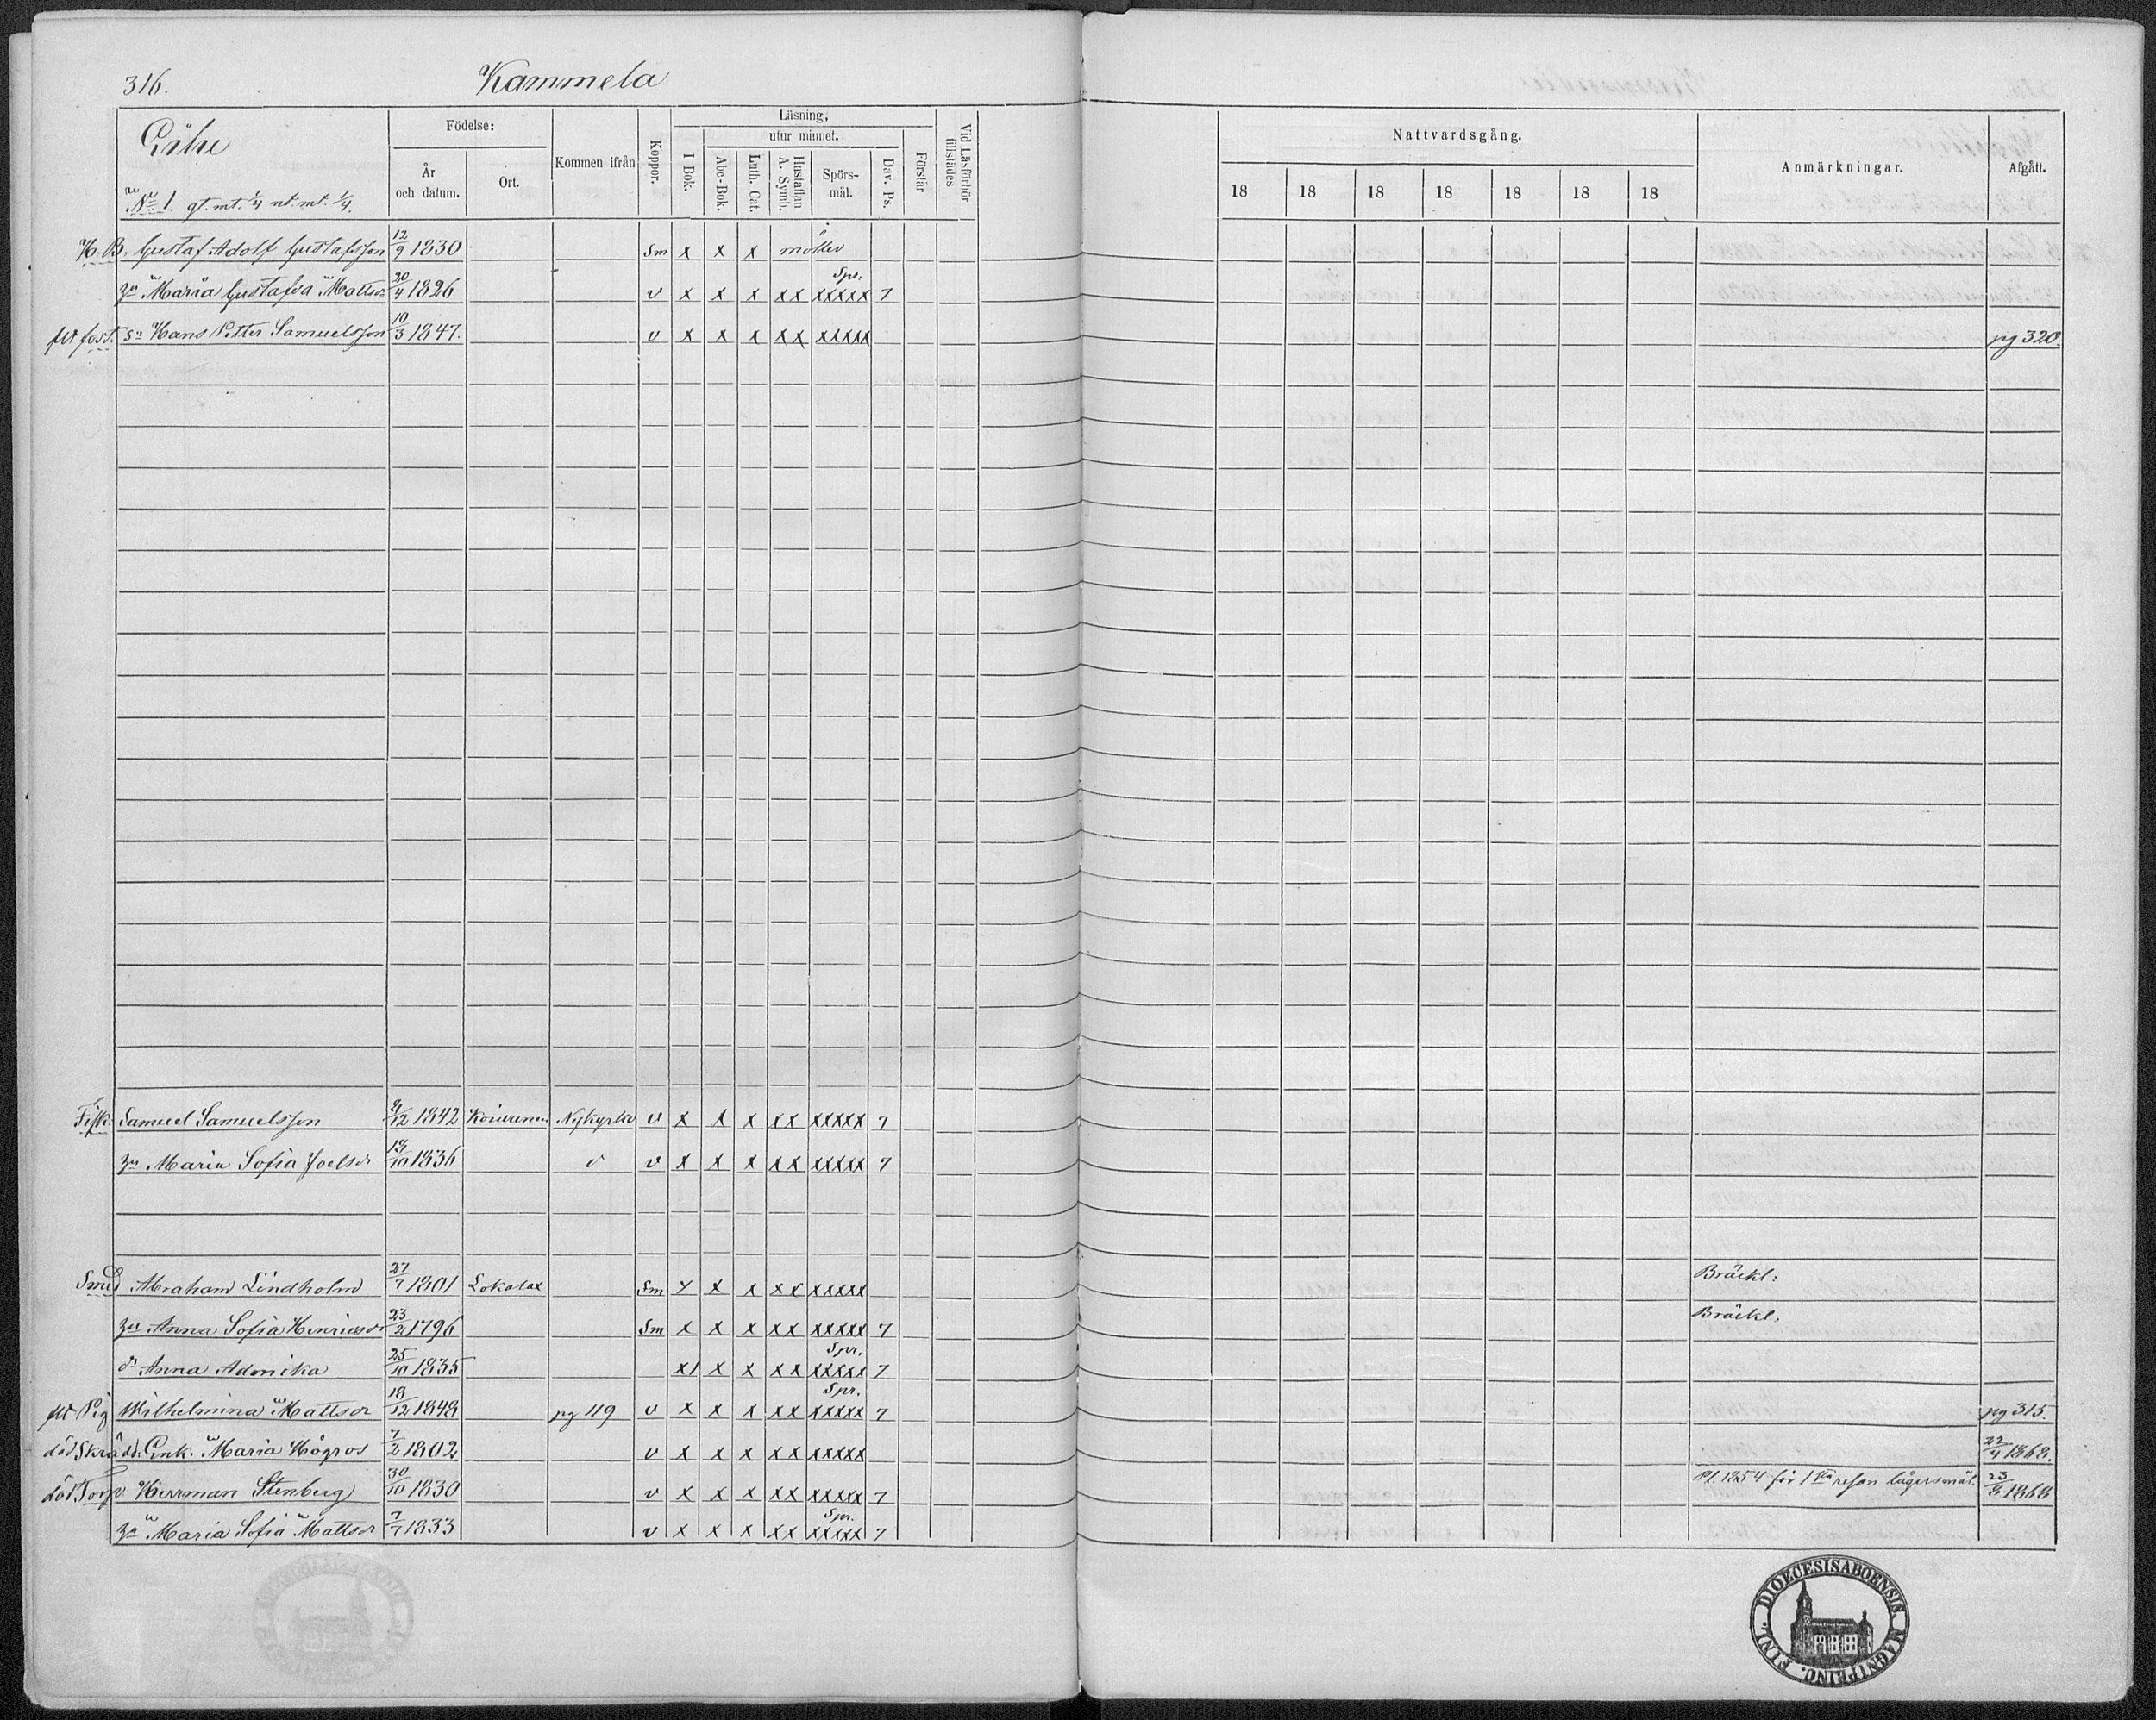 316. Kammela
Födelse: Kommen ifrån Koppor. Läsning, utur minnet. Förstår Vid Läsförhör tillstädes Nattvardsgång. Anmärkningar. Afgått.
År och datum. Ort. I Bok. Abc-Bok. Luth. Cat. Hustaflan A. Symb. Spörs-mål. Dav. Ps. 18 18 18 18 18 18 18
No 1. gt. mt. 1/4 nt. mt. 1/4.
H. B. Gustaf Adolf Gustafsson 12/9 1830 Sm x x x
Maria Gustafva Mattsdr 20/4 1826 v x x x xx Spr. xxxxx 7
fltt fost. Sn Hans Petter Samuelsson 10/3 1847. v x x x xx xxxxx pg 320.
Fisk. Samuel Samuelsson 9/12 1842 Nykyrko v x x x xx xxxxx 7
Maria Sofia Joelsdr 19/10 1836 v v x x x xx xxxxx 7
Smed Abraham Lindholm 27/7 1801 Lokalax Sm x x x xx xxxxx Bräckl:
Anna Sofia Henricsdr 23/2 1796 Sm x x x xx xxxxx 7 Bräckl.
dr Anna Adonika 25/10 1835 x1 x x xx Spr. xxxxx 7
fltt Pig Wilhelmina Mattsdr 18/12 1848 pg 119 v x x x xx Spr. xxxxx 7 pg 315.
död Skrädd. Enk. Maria Högros 7/2 1802 v x x x xx xxxxx 22/4 1868.
död Torp Herrman Stenberg 30/10 1830 v x x x xx xxxxx 7 Pl. 1854 för 1sta resan lägersmål. 23/8 1868
Maria Sofia Mattsdr 7/7 1833 v x x x xx Spr. xxxxx 7
DIOECESIS ABOENSIS MAGNI PRINC. FINL.